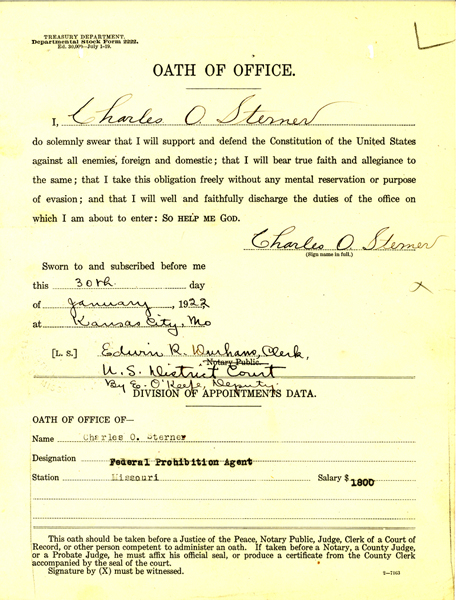 TREASURY DEPARTMENT.
Departmental Stock Form 2222.
Ed. 30,000—July 1-19.
OATH OF OFFICE.
I, Charles O. Sterner
do solemnly swear that I will support and defend the Constitution of the United States
against all enemies, foreign and domestic; that I will bear true faith and allegiance to
the same; that I take this obligation freely without any mental reservation or purpose
of evasion; and that I will well and faithfully discharge the duties of the office on
which I am about to enter: SO HELP ME GOD.
Charles O. Sterner
(Sign name in full.)
Sworn to and subscribed before me
this 30th day
of January, 1922
at Kansas City, Mo
[L. S.] Edwin R. Durham, Clerk,
Notary Public.
U.S. District Court
By E. O'Keefe, Deputy
DIVISION OF APPOINTMENTS DATA.
OATH OF OFFICE OF—
Name Charles O. Sterner
Designation Federal Prohibition Agent
Station Missouri Salary $ 1800
This oath should be taken before a Justice of the Peace, Notary Public, Judge, Clerk of a Court of
Record, or other person competent to administer an oath. If taken before a Notary, a County Judge,
or a Probate Judge, he must affix his official seal, or produce a certificate from the County Clerk
accompanied by the seal of the court.
Signature by (X) must be witnessed.
2—7163